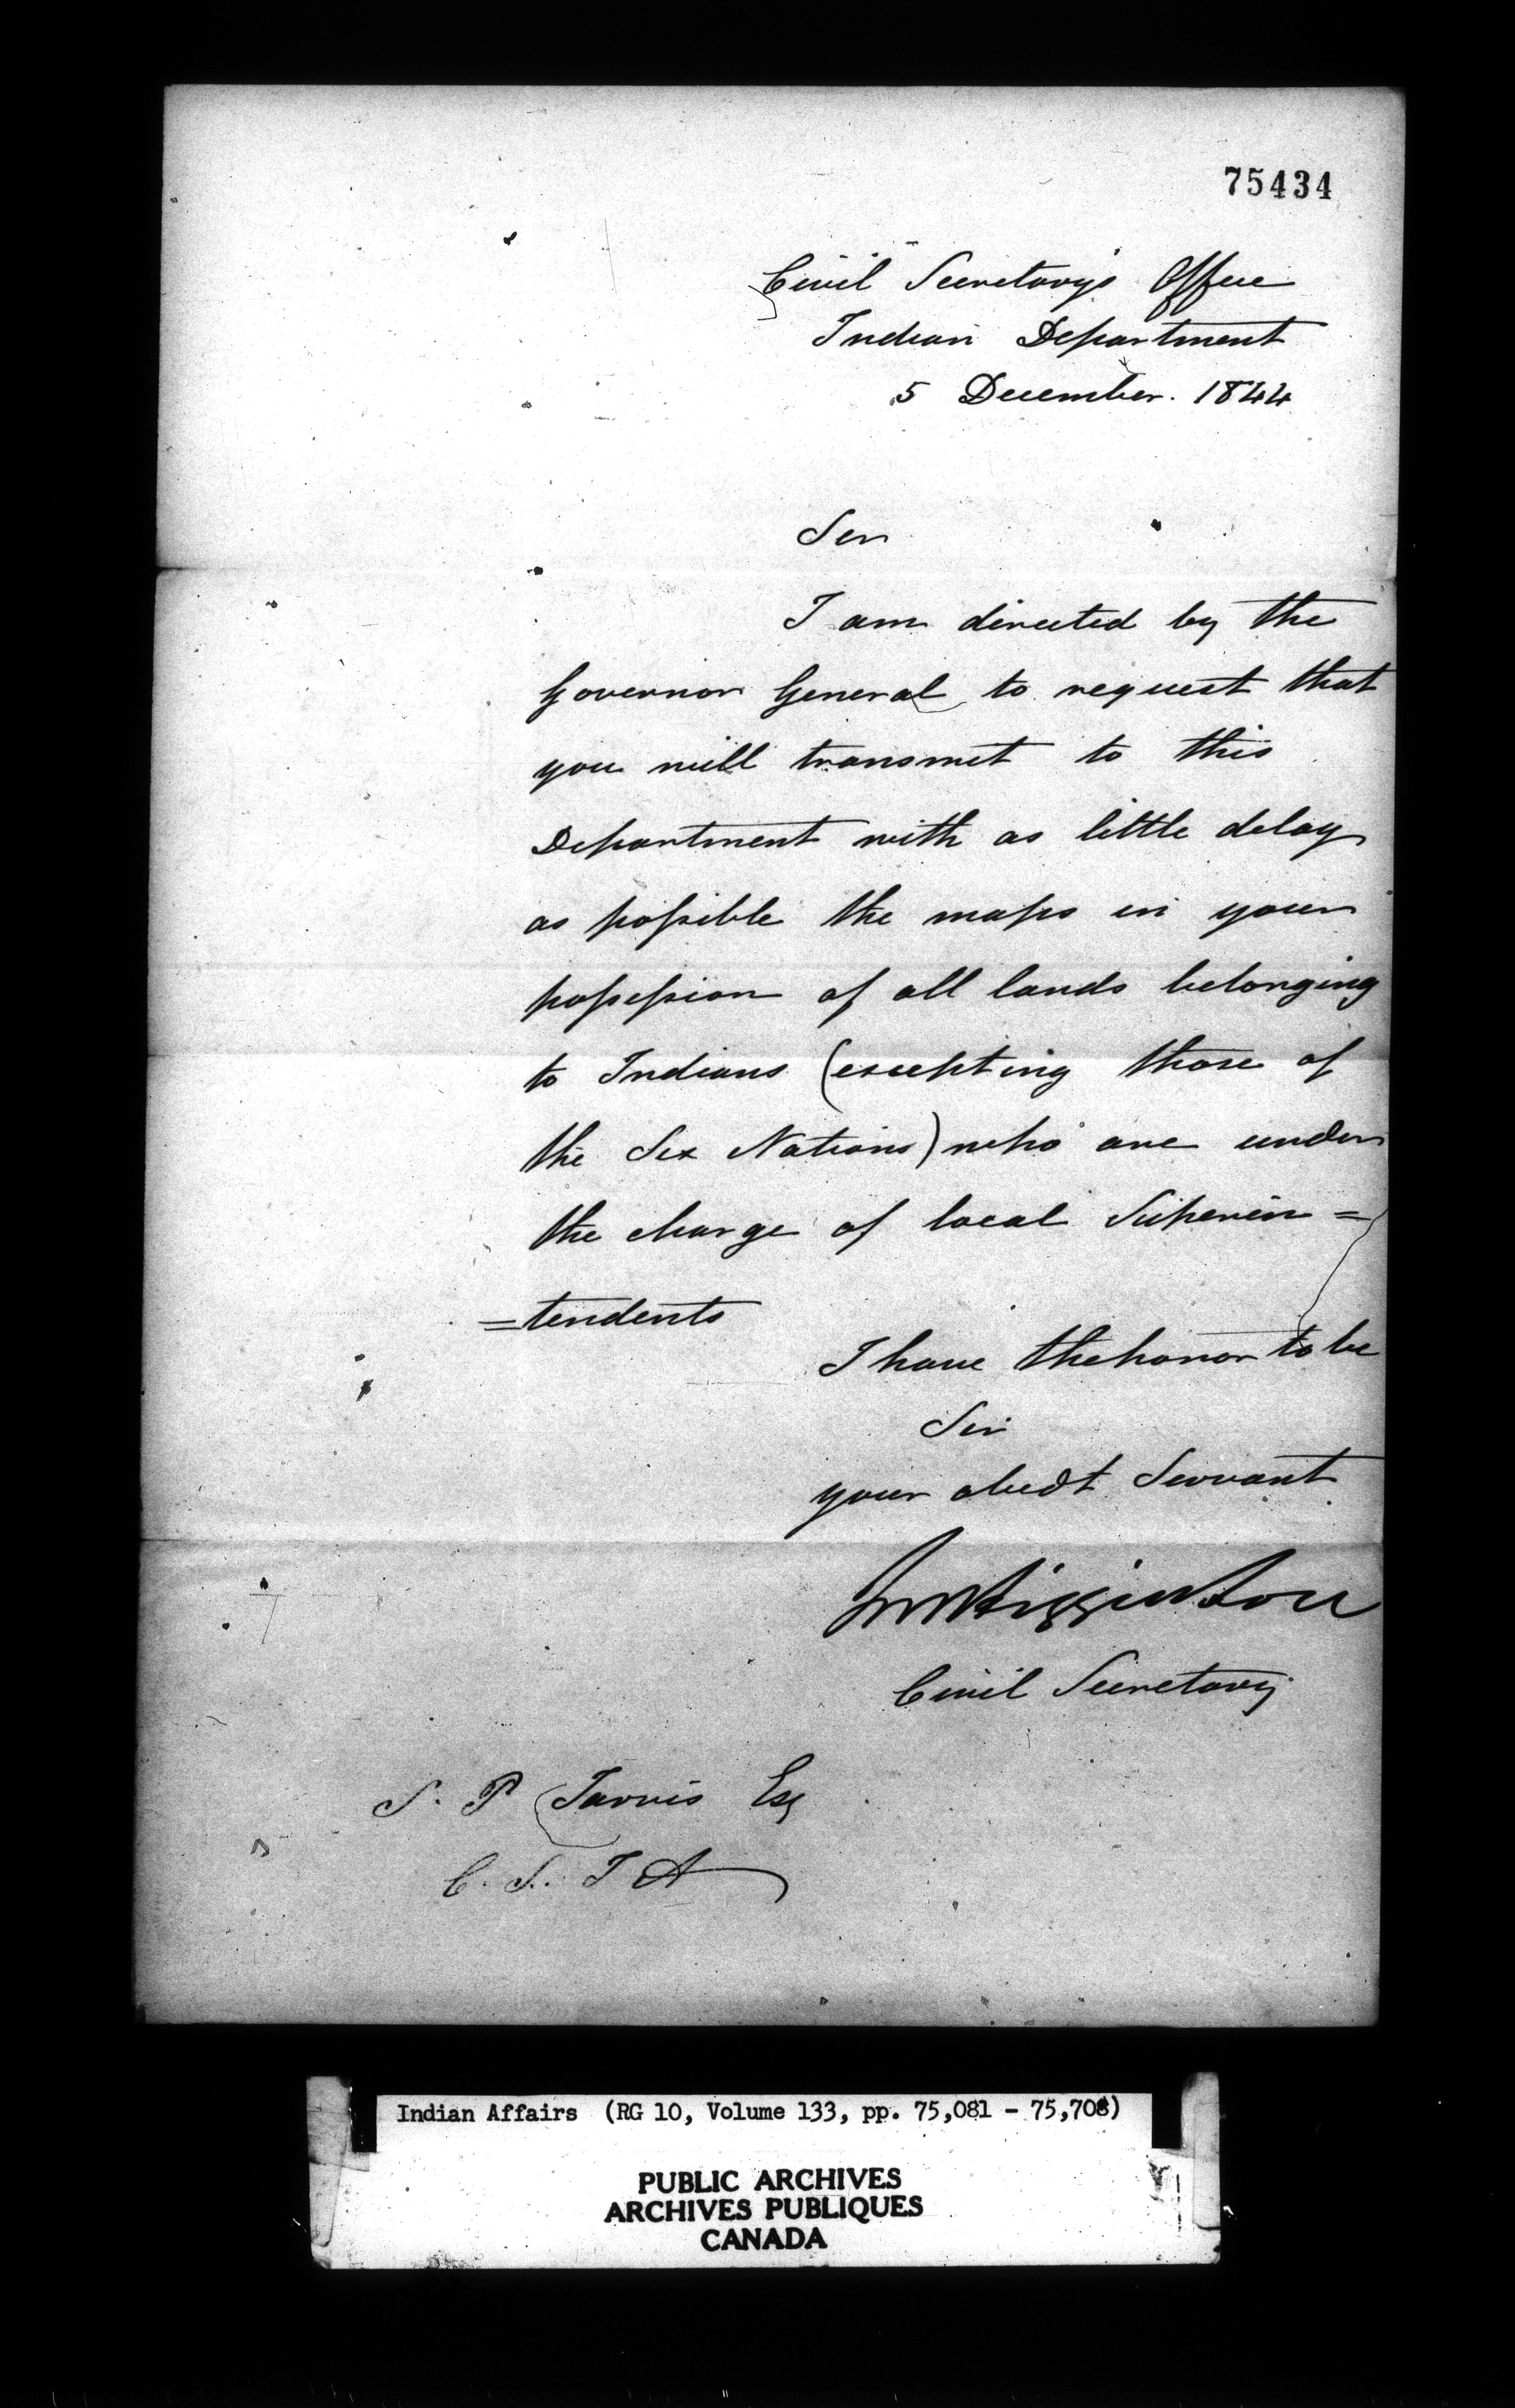 75434
Civil Secretary's Office
Indian Department
5 December. 1844
Sir
I am directed by the
Governor General to request that
you will transmit to this
Department with as little delay
as possible the maps in your
possession of all lands belonging
to Indians (excepting those of
the Six Nations) who are under
the charge of local Superin=
=tendents
I have the honor to be
Sir
your obedt Servant
JM Higginson
Civil Secretary
S. P Jarvis Esq
C. S. I A
Indian Affairs (RG 10, Volume 133, pp. 75,081 - 75,708)
PUBLIC ARCHIVES
ARCHIVES PUBLIQUES
CANADA